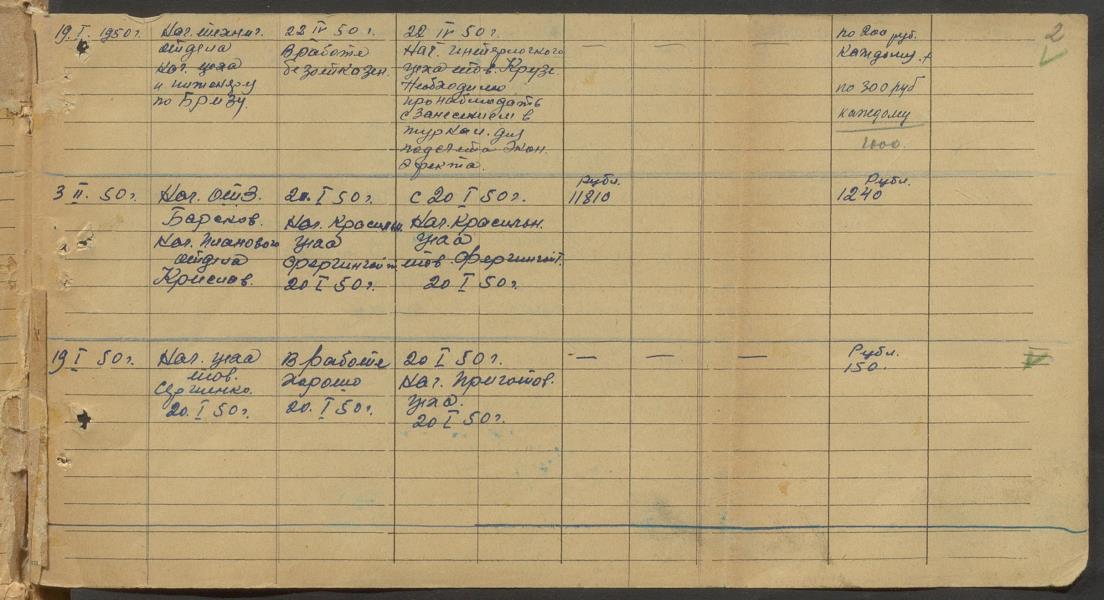 2
19.I. 1950г.
Нач. технич.
отдела
Нач. цеха
и инженеру
по Бризу.
22 IV 50г.
В работе
безотказен.
22 IV 50г.
Нач. интерлочного
цеха тов. Крузе.
Необходимо
пронаблюдать
с занесением в
журнал для
подсчета экон.
эфекта.
— — —
по 200 руб.
каждому
по 300 руб
каждому
1000.
3 II. 50г.
Нач. ОтЗ.
Нач. Планового
отдела
20. I 50г.
Нач. Красильн.
цеха
20 I 50г.
с 20 I 50г.
Нач. Красильн.
цеха
тов.
20 I 50г.
Рубл.
11810
Рубл.
1240
19 I 50г.
Нач. цеха
тов.
20. I 50г.
В работе
хорошо
20. I 50г.
20 I 50г.
Нач. Приготов.
цеха.
20 I 50г.
— — —
Рубл.
150.